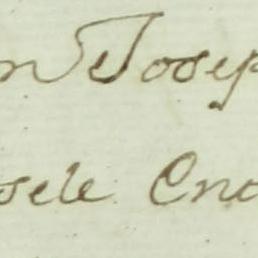 n Josep
sele Eno